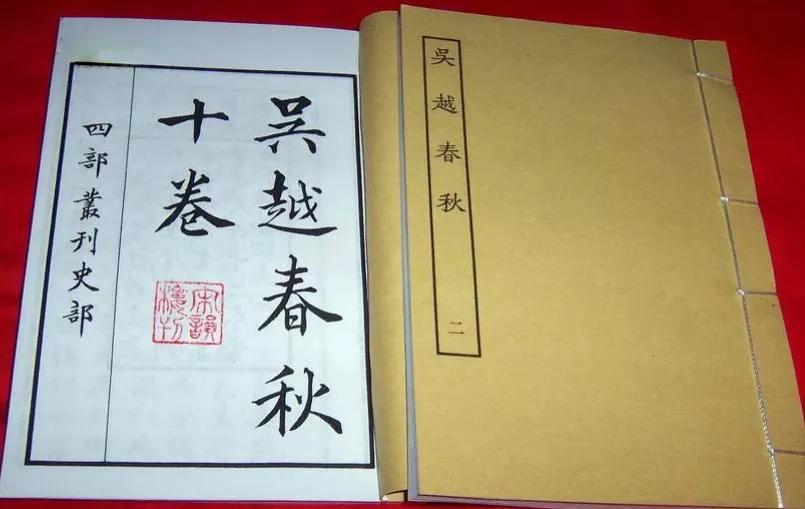 吳越春秋
十卷
宋韻
樓刊
四部叢刊史部
吳越春秋 二